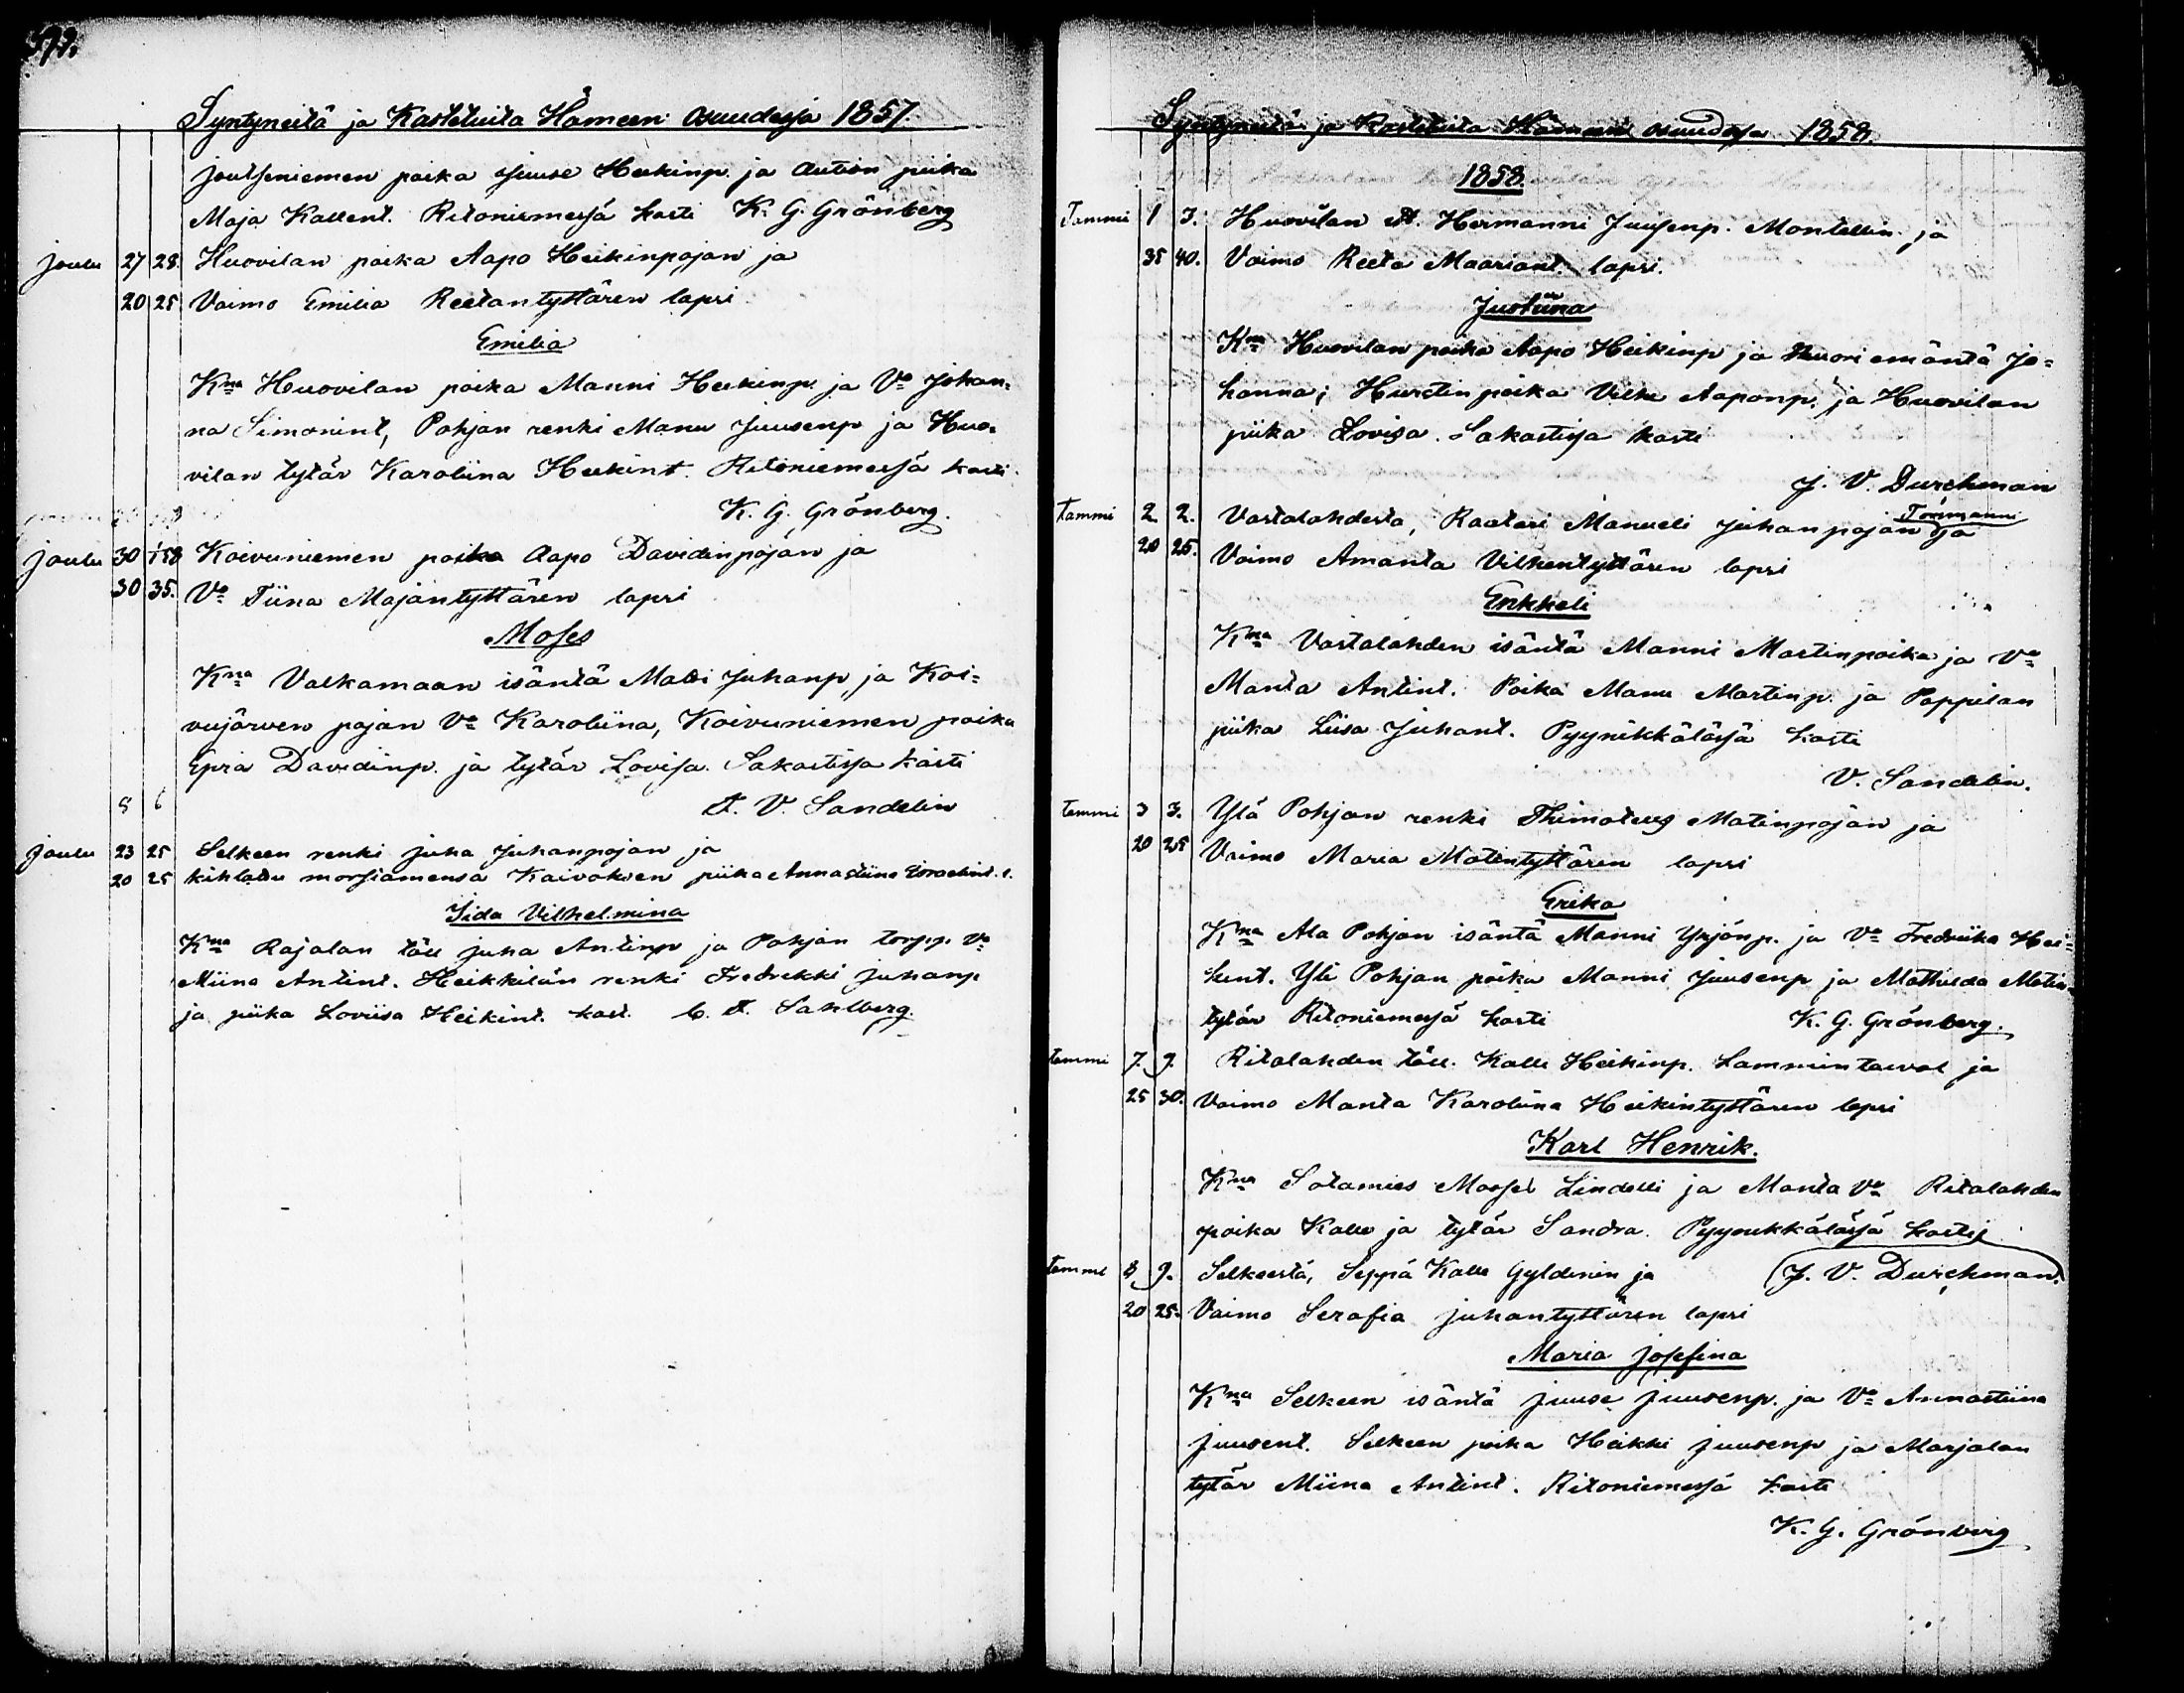 Syntyneitä ja Kastetuita Hämeen osuudessa 1857.
Joutseniemen poika Juuse Heikinp. ja Aution piika
Maja Kallent. Ritoniemessä kasti K. G. Grönberg
Joulu 27 28. Huovilan poika Aapo Heikinpojan ja
20 25 Vaimo Emilia Reetantyttären lapsi
Emilia
Kna Huovilan poika Manni Heikinp. ja Vo Johan-
na Simonint, Pohjan renki Manu Juusenp ja Huo-
vilan tytär Karoliina Heikint. Ritoniemessä kasti.
K. G. Grönberg.
Joulu 30 1/58 Koivuniemen poika Aapo Davidinpojan ja
30 35. Vo Tiina Majantyttären lapsi
Moses
Kna Valkamaan isäntä Matti Juhanp, ja Koi-
vujärven pojan Vo Karoliina, Koivuniemen poika
Epra Davidinp. ja tytär Lovisa. Sakastissa kasti
5 6 A. V. Sandelin
Joulu 23 25 Selkeen renki Juha Juhanpojan ja
20 25 kihlatu morsiamensa Kaivoksen piika Annastiina Israelint. l.
Iida Vilhelmina
Kna Rajalan töll Juha Antinp ja Pohjan torpp. Vo
Miina Antint. Heikkilän renki Fredrekki Juhanp
ja piika Loviisa Heikint. kast. C. A. Sahlberg.
Syntyneitä ja Kastetuita Hämeen osuudessa 1858.
1858.
Tammi 1 3. Huovilan A. Hermanni Juusenp. Montellin, ja
35 40. Vaimo Reeta Maariant. lapsi.
Justiina
Kna Huovilan poika Aapo Heikinp ja Nuori emäntä Jo-
hanna; Hurstin poika Vilke Aaponp. ja Huovilan
piika Lovisa. Sakastissa kasti
J. V. Durchman
Tammi 2. 2. Vastalahdesta, Raatari Manueli Juhanpojan Tormanni ja
20 25. Vaimo Amanta Vilhentyttären lapsi
Enkkeli
Kna Vastalahden isäntä Manni Martinpoika ja Vo
Manta Antint. Poika Manu Martinp. ja Pappilan
piika Liisa Juhant. Pyynikkälässä kasti
V. Sandelin.
Tammi 3 3. Ylä Pohjan renki Thimoteus Matinpojan ja
20 25 Vaimo Maria Matintyttären lapsi
Erika
Kna Ala Pohjan isäntä Manni Yrjönp. ja Vo Fredriika Hei-
kint. Yli Pohjan poika Manni Juusenp ja Mathilda Matin-
tytär Ritoniemessä kasti K. G. Grönberg.
Tammi 7. 9. Ritalahden töll. Kalle Heikinp. Lammintaival ja
25 30. Vaimo Manta Karoliina Heikintyttären lapsi
Karl Henrik.
Kna Sotamies Mooses Lindelli ja Manta Vo Ritalahden
poika Kalle ja tytär Sandra. Pyynikkälässä kasti
J. V. Durchman.
Tammi 8 9. Selkeestä, Seppä Kalle Gyldenin ja
20 25. Vaimo Serafia Juhantyttären lapsi
Maria Josefina
Kna Selkeen isäntä Juuse Juusenp. ja Vo Annastiina
Juusent. Selkeen poika Heikki Juusenp ja Marjalan
tytär Miina Antint. Ritoniemessä kasti
K. G. Grönberg